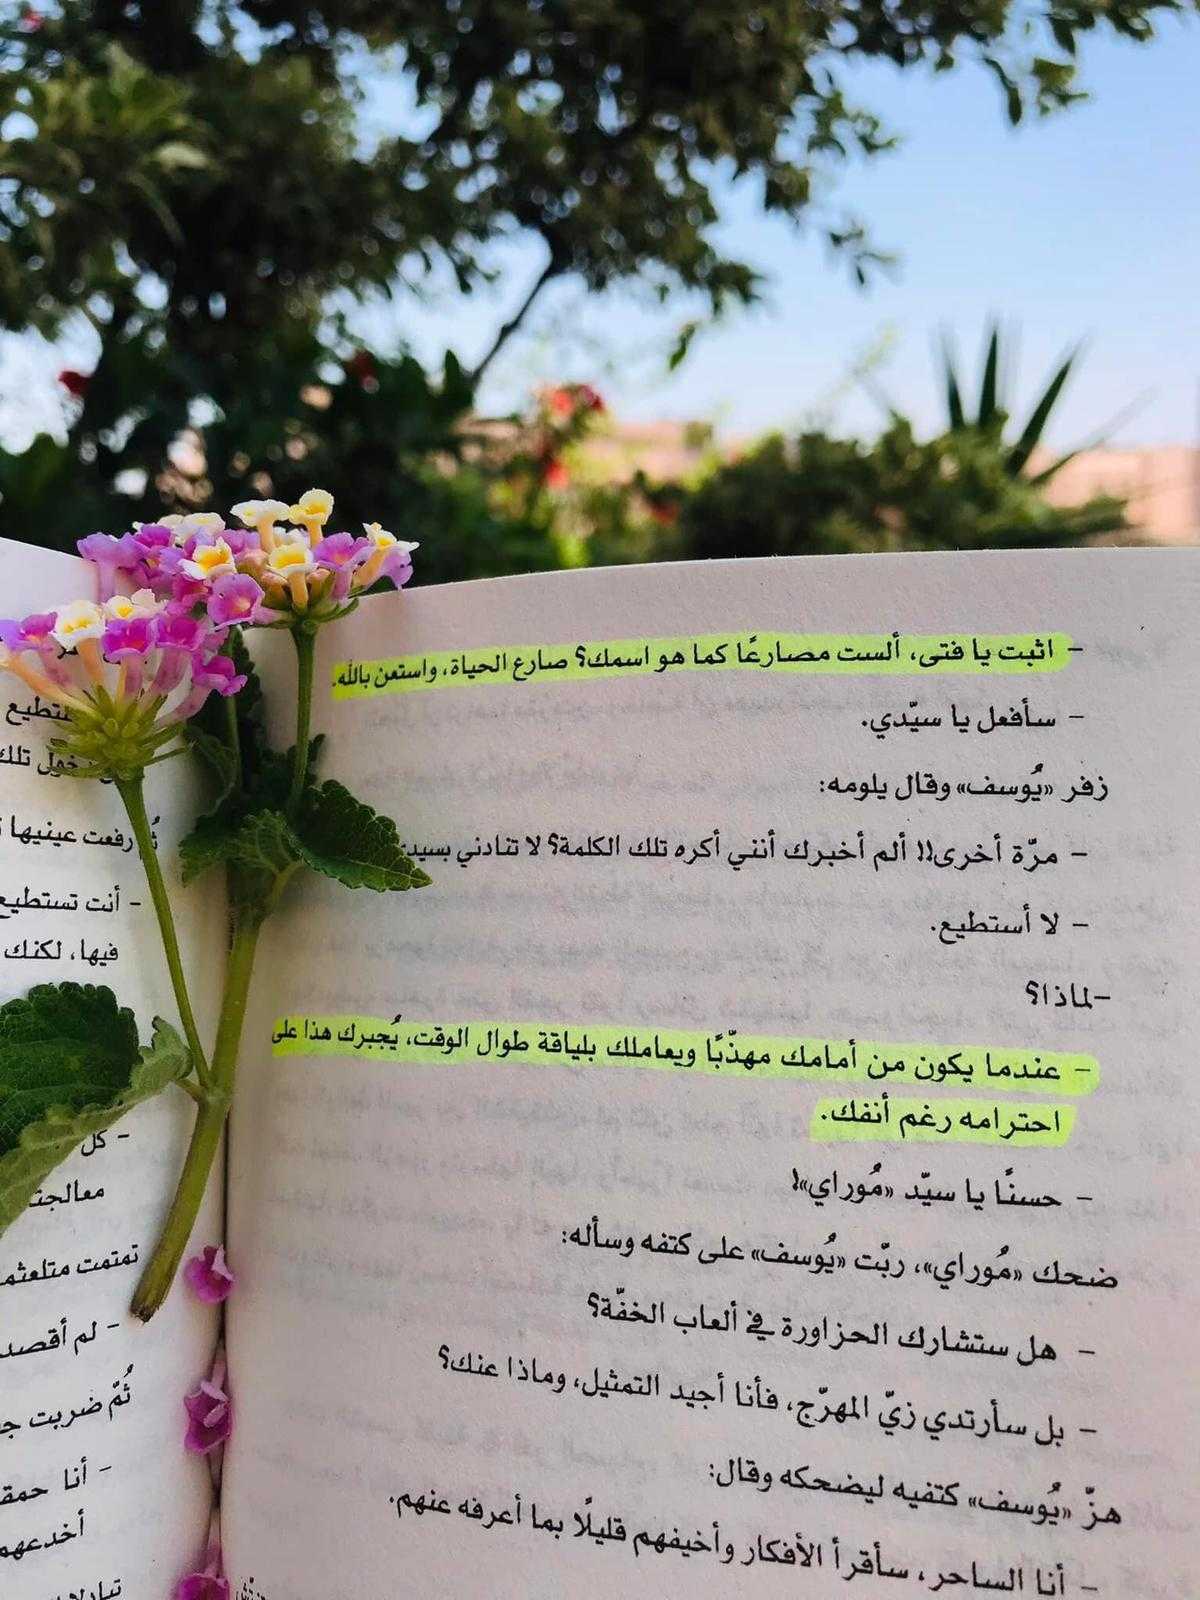 – اثبت يا فتى، ألست مصارعًا كما هو اسمك؟ صارع الحياة، واستعن بالله.
– سأفعل يا سيّدي.
زفر «يُوسف» وقال يلومه:
– مرّة أخرى!! ألم أخبرك أنني أكره تلك الكلمة؟ لا تنادني
– لا أستطيع.
–لماذا؟
– عندما يكون من أمامك مهذّبًا ويعاملك بلياقة طوال الوقت، يُجبرك هذا على
احترامه رغم أنفك.
– حسنًا يا سيّد «مُوراي»!
ضحك «مُوراي»، ربّت «يُوسف» على كتفه وسأله:
– هل ستشارك الحزاورة في ألعاب الخفّة؟
– بل سأرتدي زيّ المهرّج، فأنا أجيد التمثيل، وماذا عنك؟
هزّ «يُوسف» كتفيه ليضحكه وقال:
– أنا الساحر، سأقرأ الأفكار وأخيفهم قليلًا بما أعرفه عنهم.
تلك
رفعت عينيها
– أنت تستطيع
فيها، لكنك
– كل
تمتمت
– لم أقصد
ثمّ ضربت
– أنا